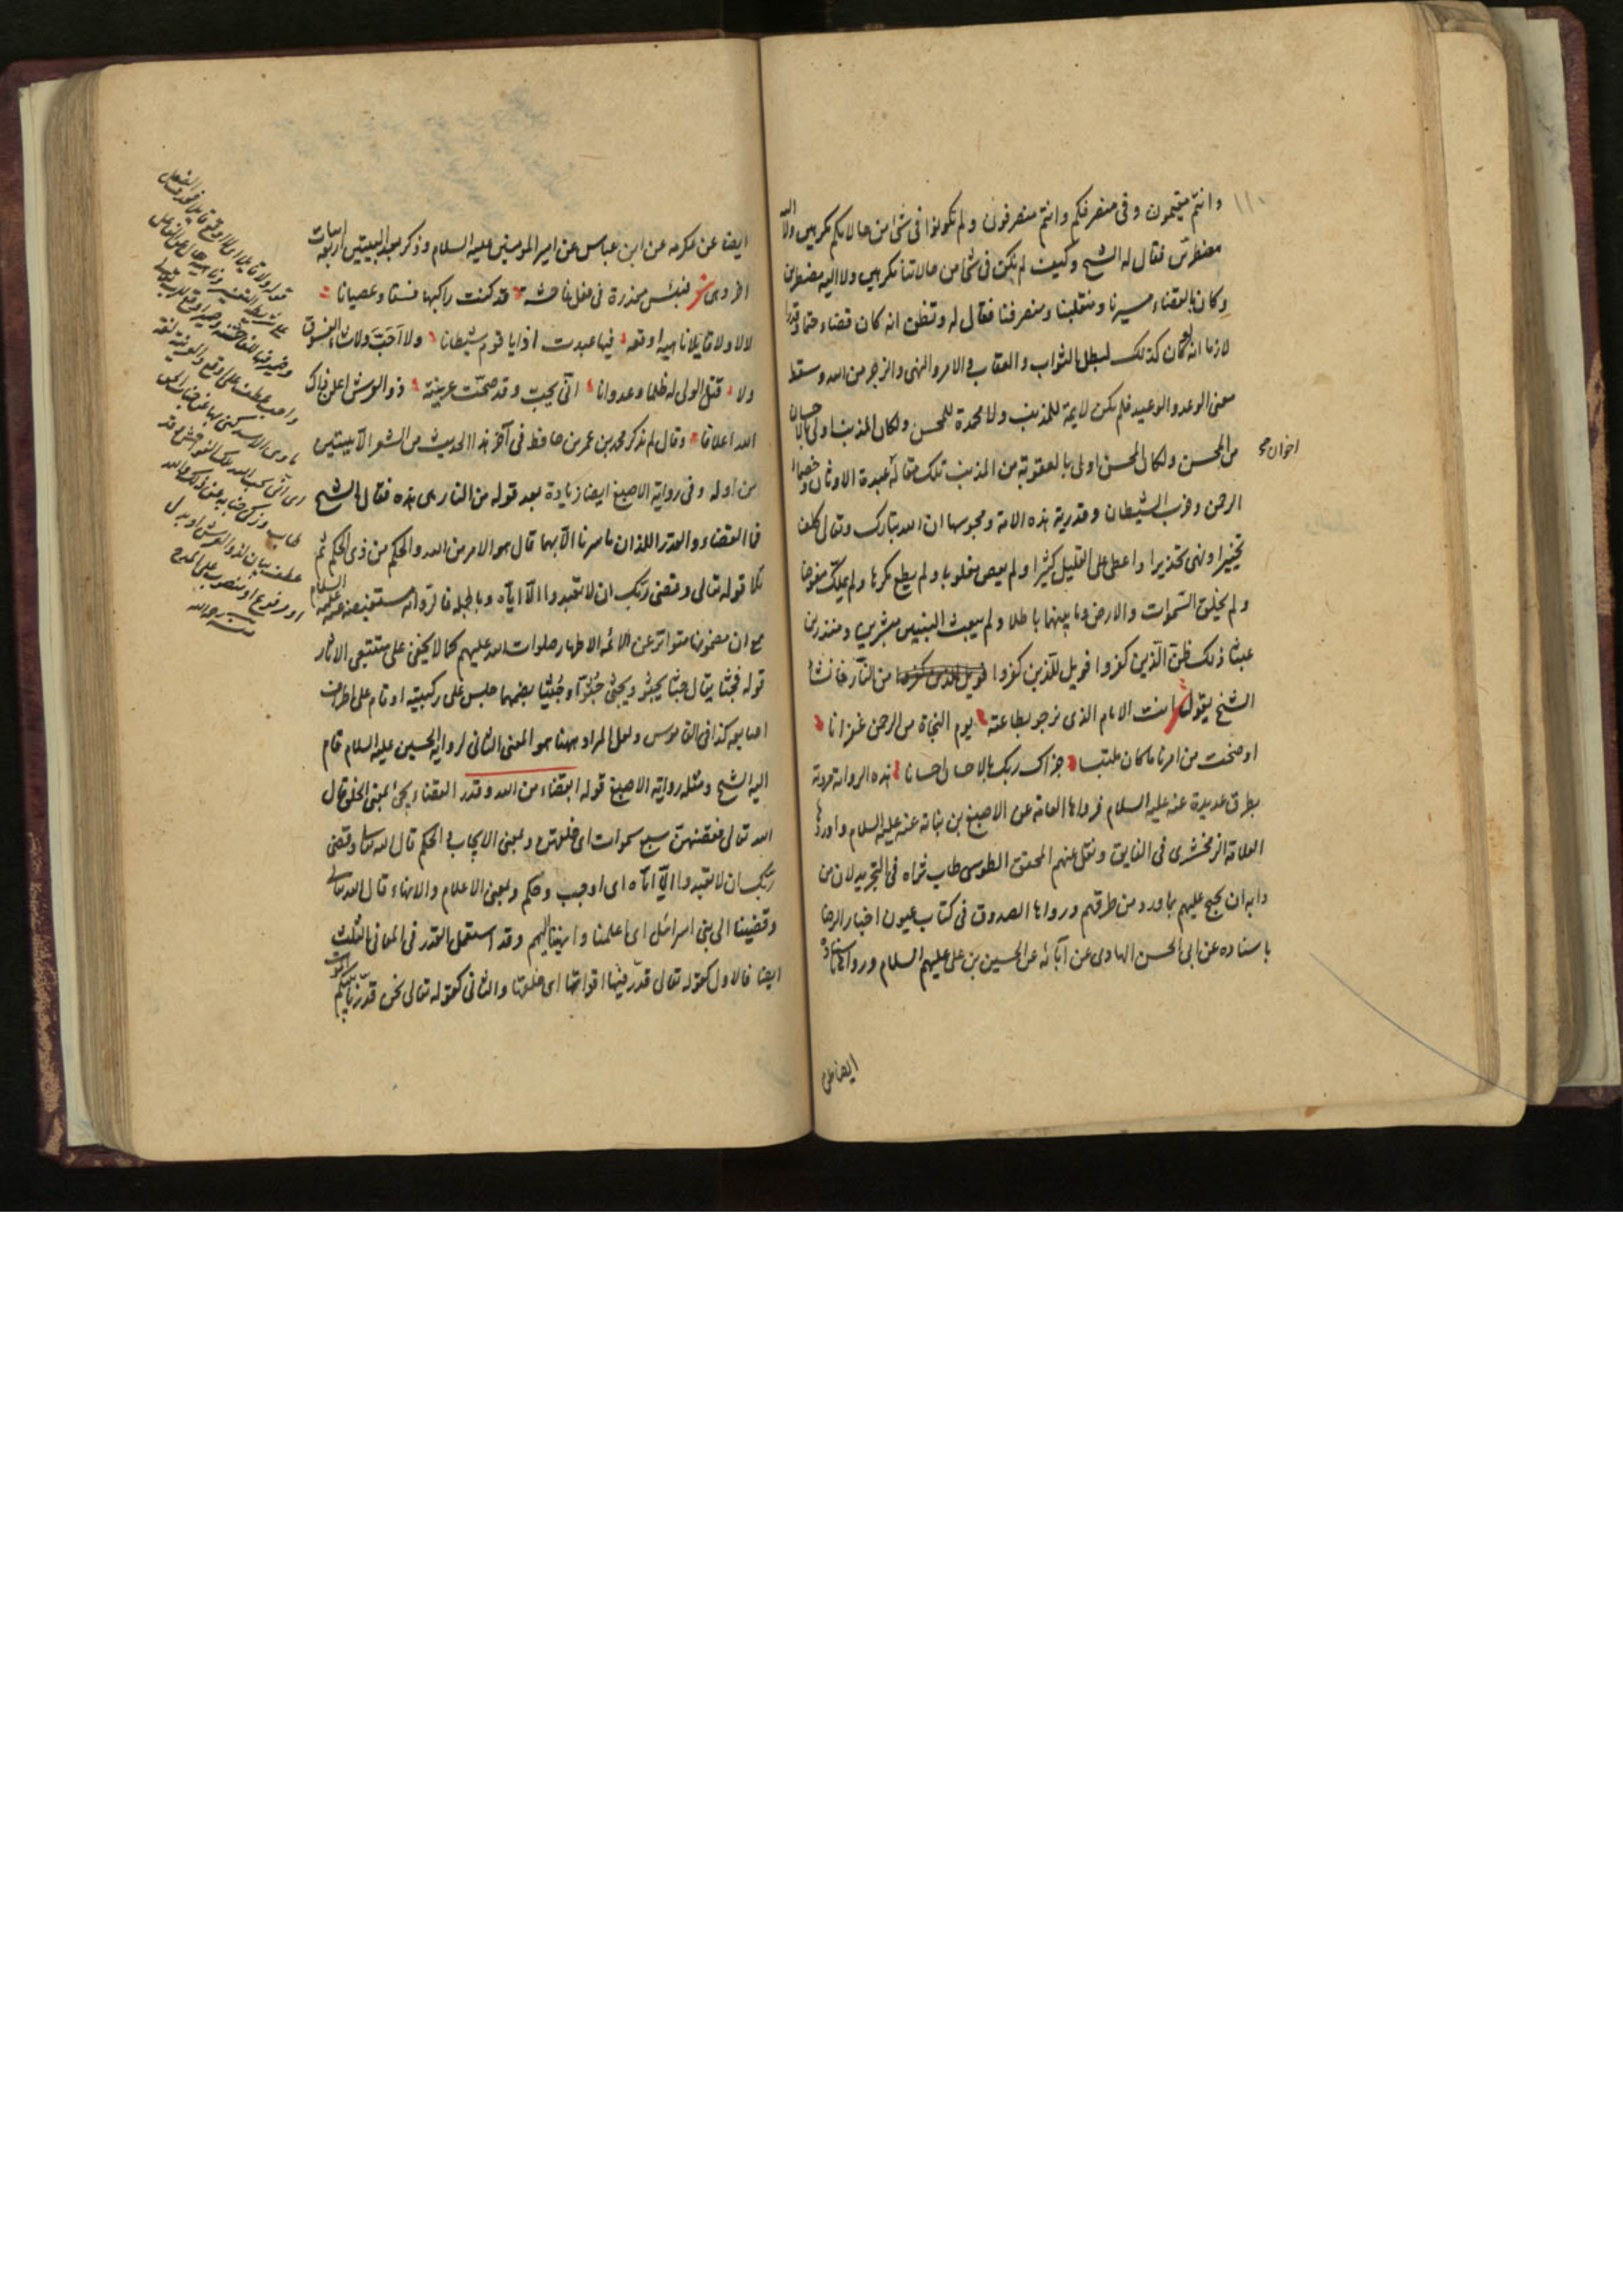 وانتم مقيمون وفى منصرفكم وانتم منصرفون ولم تكونوا فى شئ من حالاتكم مكرهين ولا اليه
مضطرين فقال له الشيخ وكيف لم نكن فى شئ من حالاتنا مكرهين ولا اليه مضطرين
وكان بالقضاء مسيرنا ومنقلبنا ومنصرفنا فقال له وتظن انه كان قضاء حتما وقدرا
لازما انه لو كان كذلك لبطل الثواب والعقاب والامر والنهى والزجر من الله وسقط
معنى الوعد والوعيد فلم تكن لائمة للمذنب ولا محمدة للمحسن ولكان المذنب اولى بالاحسان
من المحسن ولكان المحسن اولى بالعقوبة من المذنب تلك مقالة عبدة الاوثان وخصماء
اخوان صح
الرحمن وحزب الشيطان وقدرية هذه الامة ومجوسها ان الله تبارك وتعالى كلف
تخييرا ونهى تحذيرا واعطى على القليل كثيرا ولم يعص مغلوبا ولم يطع مكرها ولم يملك مفوضا
ولم يخلق السموات والارض وما بينهما باطلا ولم يبعث النبيين مبشرين ومنذرين
عبثا ذلك ظن الذين كفروا فويل للذين كفروا من النار فانشأ
الشيخ يقول شعر انت الامام الذى نرجو بطاعته يوم النجاة من الرحمن غفرانا
اوضحت من امرنا ما كان ملتبسا جزاك ربك بالاحسان احسانا هذه الرواية مروية
بطرق عديدة عنه عليه السلام فرواها العامة عن الاصبغ بن نباته عنه عليه السلام واوردها
العلامة الزمخشرى فى الفايق ونقل عنهم المحقق الطوسى طاب ثراه فى التجريد لان من
دابه ان يحتج عليهم بما ورد من طرقهم ورواها الصدوق فى كتاب عيون اخبار الرضا
باسناده عن ابى الحسن الهادى عن آبائه عن الحسين بن على عليهم السلام ورواها باسناده
ايضا عن
ايضا عن عكرمه عن ابن عباس عن امير المومنين عليه السلام وذكر بعد البيتين اربعة ابيات
اخر وهى شعر فليس معذرة فى فعل فاحشة قد كنت راكبها فسقا وعصيانا
لا لا ولا قايلا ناهيه اوقعه فيها عبدت اذا يا قوم شيطانا ولا احب ولا شاء الفسوق
ولا قتل الولى له ظلما وعدوانا انى يحب وقد صحت عزيمته ذو العرش اعلن ذاك
الله اعلانا وقال لم يذكر محمد بن عمر بن حافظ فى آخر هذا الحديث من الشعر الا بيتين
من اوله وفى رواية الاصبغ ايضا زيادة بعد قوله من النار هى هذه فقال الشيخ
فما القضاء والقدر اللذان ما سرنا الا بهما قال هو الامر من الله والحكم من ذى الحكم ثم
تلا قوله تعالى وقضى ربك ان لا تعبدوا الا اياه وبالجملة فالرواية مستفيضة عنه عليه السلام
مع ان مضمونها متواتر عن الائمة الاطهار صلوات الله عليهم كما لا يخفى على متتبعى الاثار
قوله فجثا يقال جثا يجثو ويجثى جثوا وجثيا بضمهما جلس على ركبتيه او قام على اطراف
اصابعه كذا فى القاموس ولعل المراد ههنا هو المعنى الثانى لرواية الحسين عليه السلام قام
اليه الشيخ ومثله رواية الاصبغ قوله ابقضاء من الله وقدر القضاء يجئ بمعنى الخلق قال
الله تعالى فقضيهن سبع سموات اى خلقهن وبمعنى الايجاب والحكم قال الله تعالى وقضى
ربك ان لا تعبدوا الا اياه اى اوجب وحكم وبمعنى الاعلام والانهاء قال الله تعالى
وقضينا الى بنى اسرائيل اى اعلمنا وانهينا اليهم وقد استعمل القدر فى المعانى الثلث
ايضا فالاول كقوله تعالى قدر فيها اقواتها اى خلقها والثانى كقوله تعالى نحن قدرنا بينكم الموت